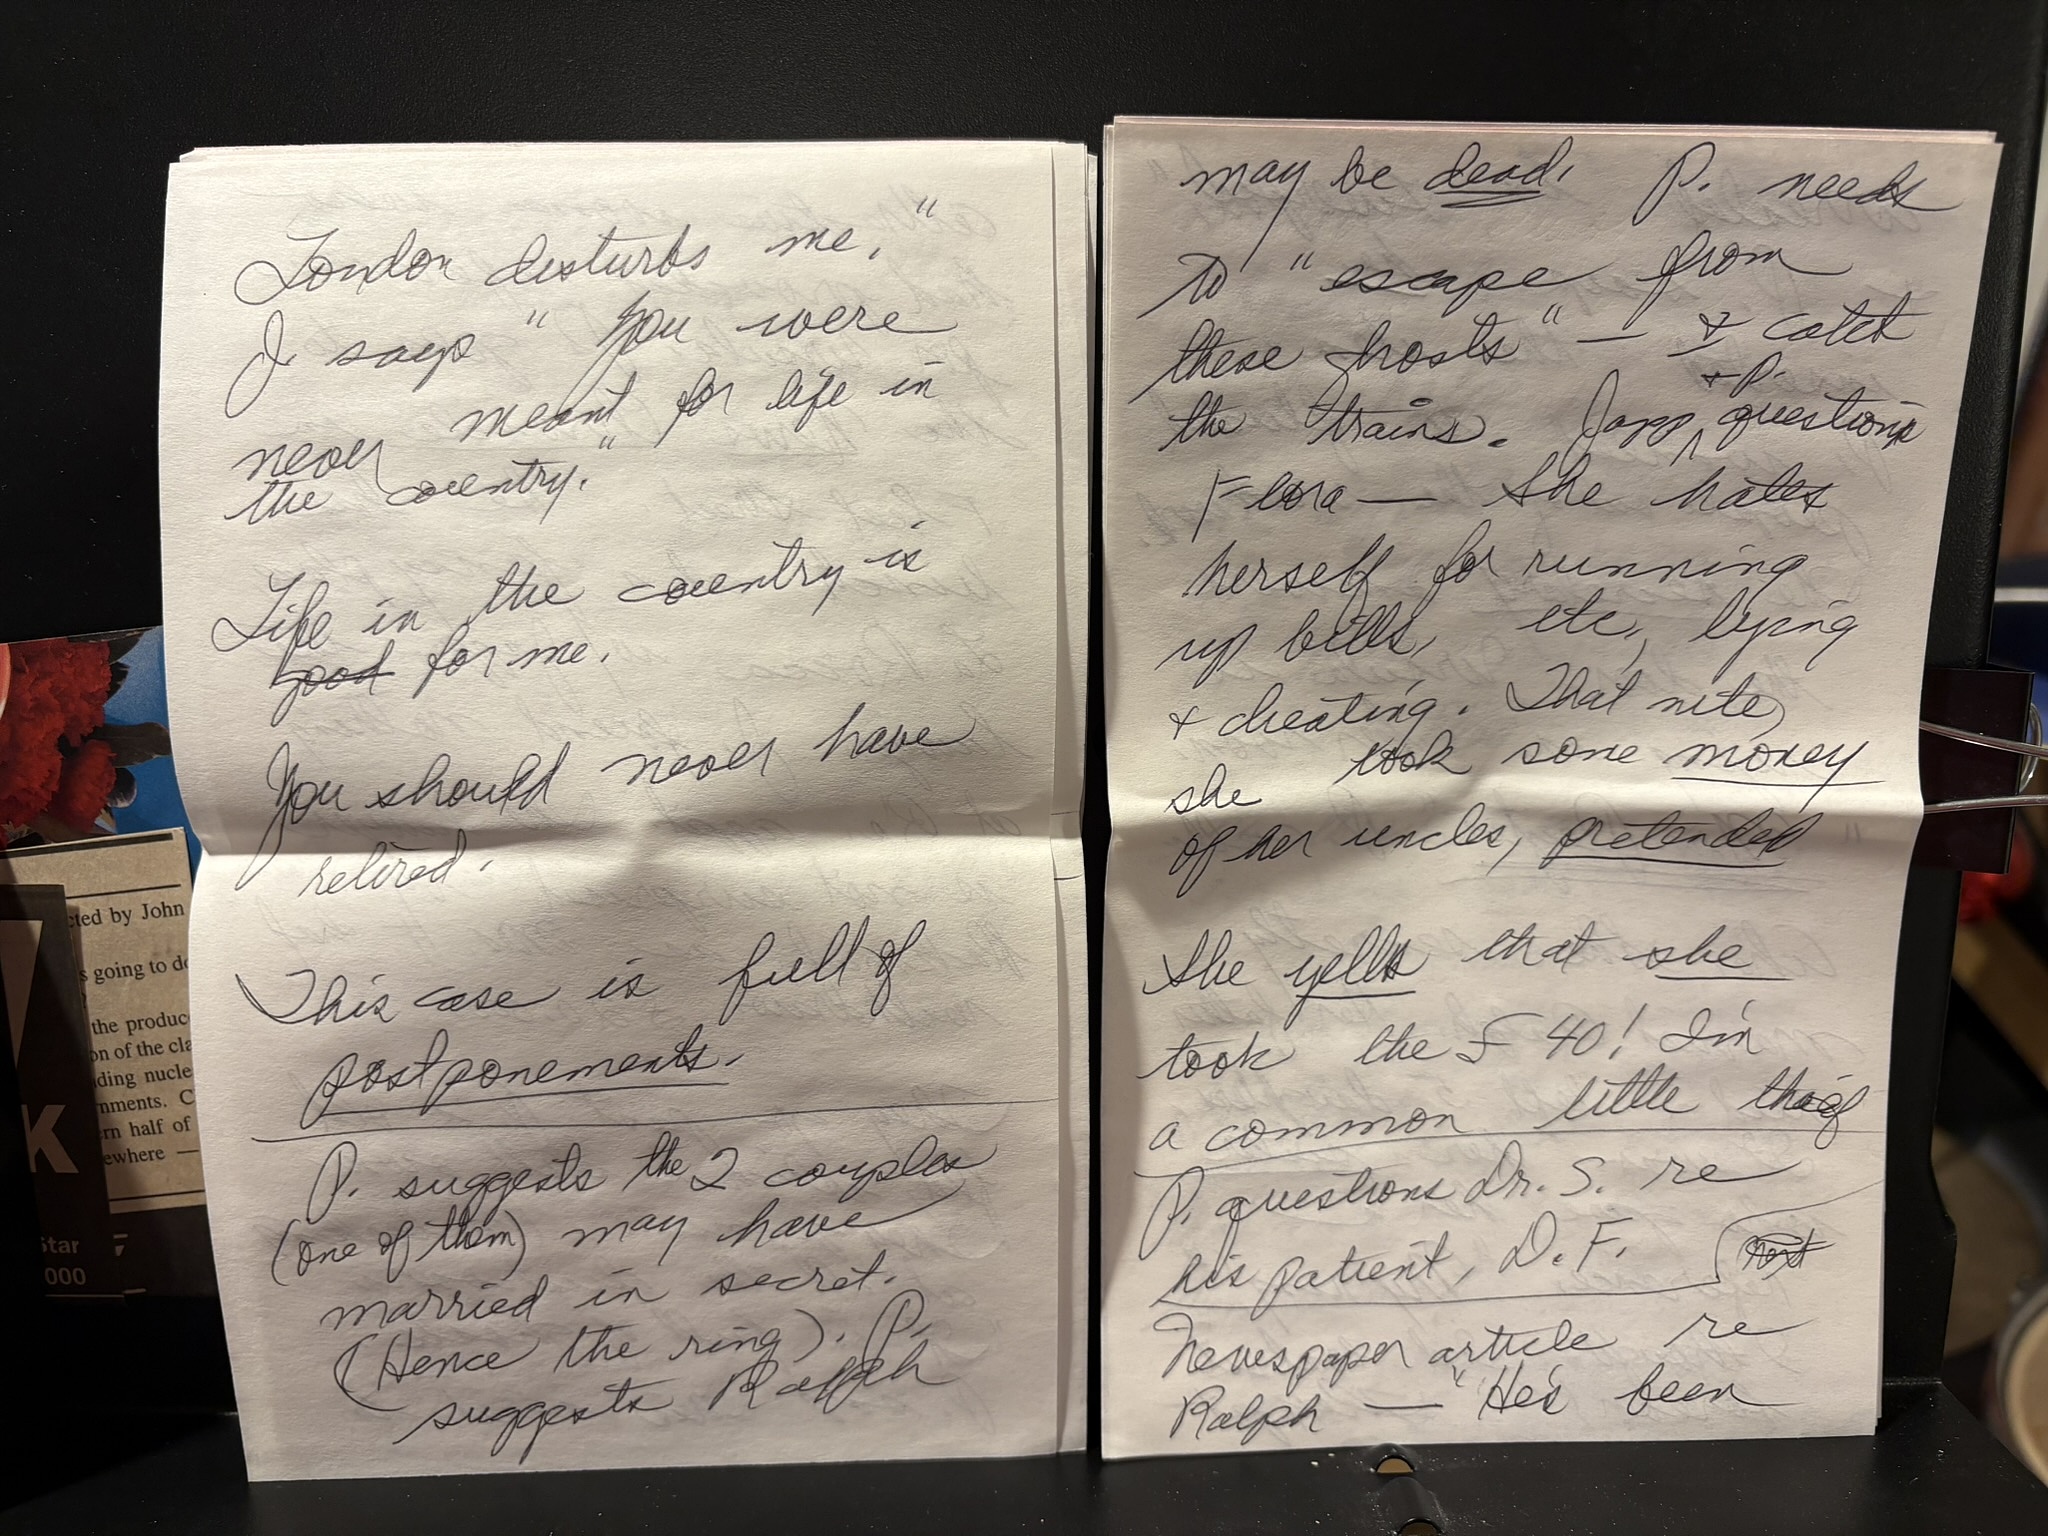 London disturbs me."
J says "You were
never meant for life in
the country."
Life in the country is
good for me.
You should never have
retired.
This case is full of
postponements.
P. suggests the 2 couples
(one of them) may have
married in secret.
(Hence the ring). P.
suggests Ralph
may be dead. P. needs
to "escape from
these hosts" — & catch
the trains. Japp ^ + P. questions
Flora — She hates
herself for running
up bills, etc, lying
+ cheating. That nite,
she took some money
of her uncles, pretended
She yells that she
took the £ 40! I'm
a common little thief
P. questions Dr. S. re
his patient, D. F.
Newspaper article re
Ralph — "He's been
cted by John
s going to do
the produc
on of the cla
ding nucle
nments. C
ern half of
ewhere —
K
Star
000